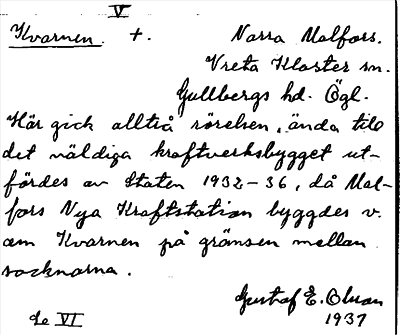 V
Kvarnen. +. Norra Malfors.
Vreta Kloster sn.
Gullbergs hd. Ögl.
Här gick alltså rörelsen, ända till
det väldiga kraftverksbygget ut-
fördes av Staten 1932-36, då Mal-
fors Nya Kraftstation byggdes v.
om Kvarnen på gränsen mellan
socknarna.
Gustaf E. Olsson
1937
de VI